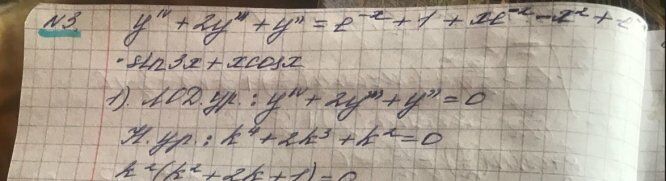 N3 y^IV + 2y''' + y'' = e^-x + 1 + xe^-x - x² + e
· sin3x + xcosx
1). ЛОД.ур.: y^IV + 2y''' + y'' = 0
Х.ур.: k⁴ + 2k³ + k² = 0
k²(k² + 2k + 1) = 0